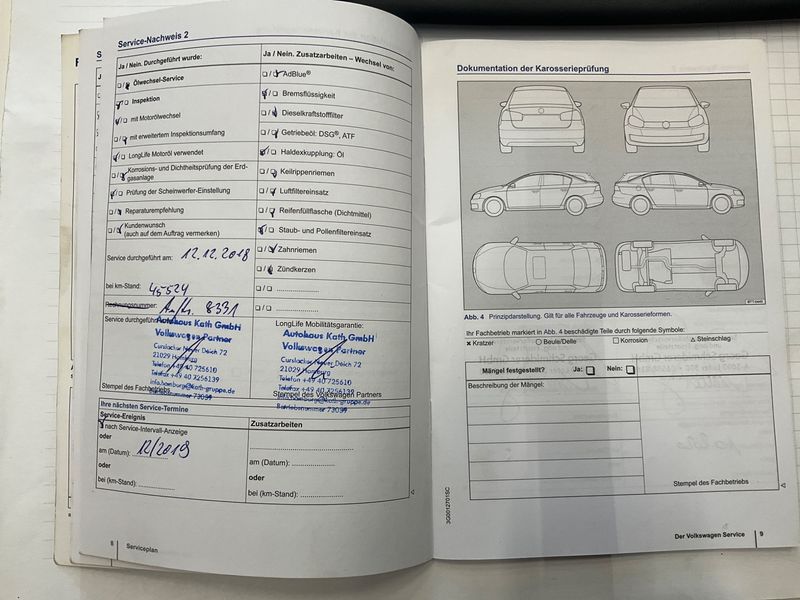 Service-Nachweis 2
Ja / Nein. Durchgeführt wurde:
Ölwechsel-Service
Inspektion
mit Motorölwechsel
mit erweitertem Inspektionsumfang
LongLife Motoröl verwendet
Korrosions- und Dichtheitsprüfung der Erd-
gasanlage
Prüfung der Scheinwerfer-Einstellung
Reparaturempfehlung
Kundenwunsch
(auch auf dem Auftrag vermerken)
Service durchgeführt am: 12.12.2018
bei km-Stand: 45524
Rechnungsnummer: 8331
Service durchgeführt
Autohaus Kath GmbH
Volkswagen Partner
Curslacker Neuer Deich 72
21029 Hamburg
Telefon +49 40 725610
Telefax +49 40 7256139
info.hamburg@kath-gruppe.de
Betriebsnummer 73039
Stempel des Fachbetriebs
Ja / Nein. Zusatzarbeiten – Wechsel von:
AdBlue®
Bremsflüssigkeit
Dieselkraftstofffilter
Getriebeöl: DSG®, ATF
Haldexkupplung: Öl
Keilrippenriemen
Luftfiltereinsatz
Reifenfüllflasche (Dichtmittel)
Staub- und Pollenfiltereinsatz
Zahnriemen
Zündkerzen
LongLife Mobilitätsgarantie:
Autohaus Kath GmbH
Volkswagen Partner
Curslacker Neuer Deich 72
21029 Hamburg
Telefon +49 40 725610
Telefax +49 40 7256139
Betriebsnummer 73039
Stempel des Volkswagen Partners
Ihre nächsten Service-Termine
Service-Ereignis
nach Service-Intervall-Anzeige
oder
am (Datum): 12/2019
oder
bei (km-Stand):
Zusatzarbeiten
am (Datum):
oder
bei (km-Stand):
8 Serviceplan
Dokumentation der Karosserieprüfung
Abb. 4 Prinzipdarstellung. Gilt für alle Fahrzeuge und Karosserieformen.
Ihr Fachbetrieb markiert in Abb. 4 beschädigte Teile durch folgende Symbole:
× Kratzer ○ Beule/Delle □ Korrosion △ Steinschlag
Mängel festgestellt? Ja: Nein:
Beschreibung der Mängel:
Stempel des Fachbetriebs
3G0012701SC
Der Volkswagen Service 9